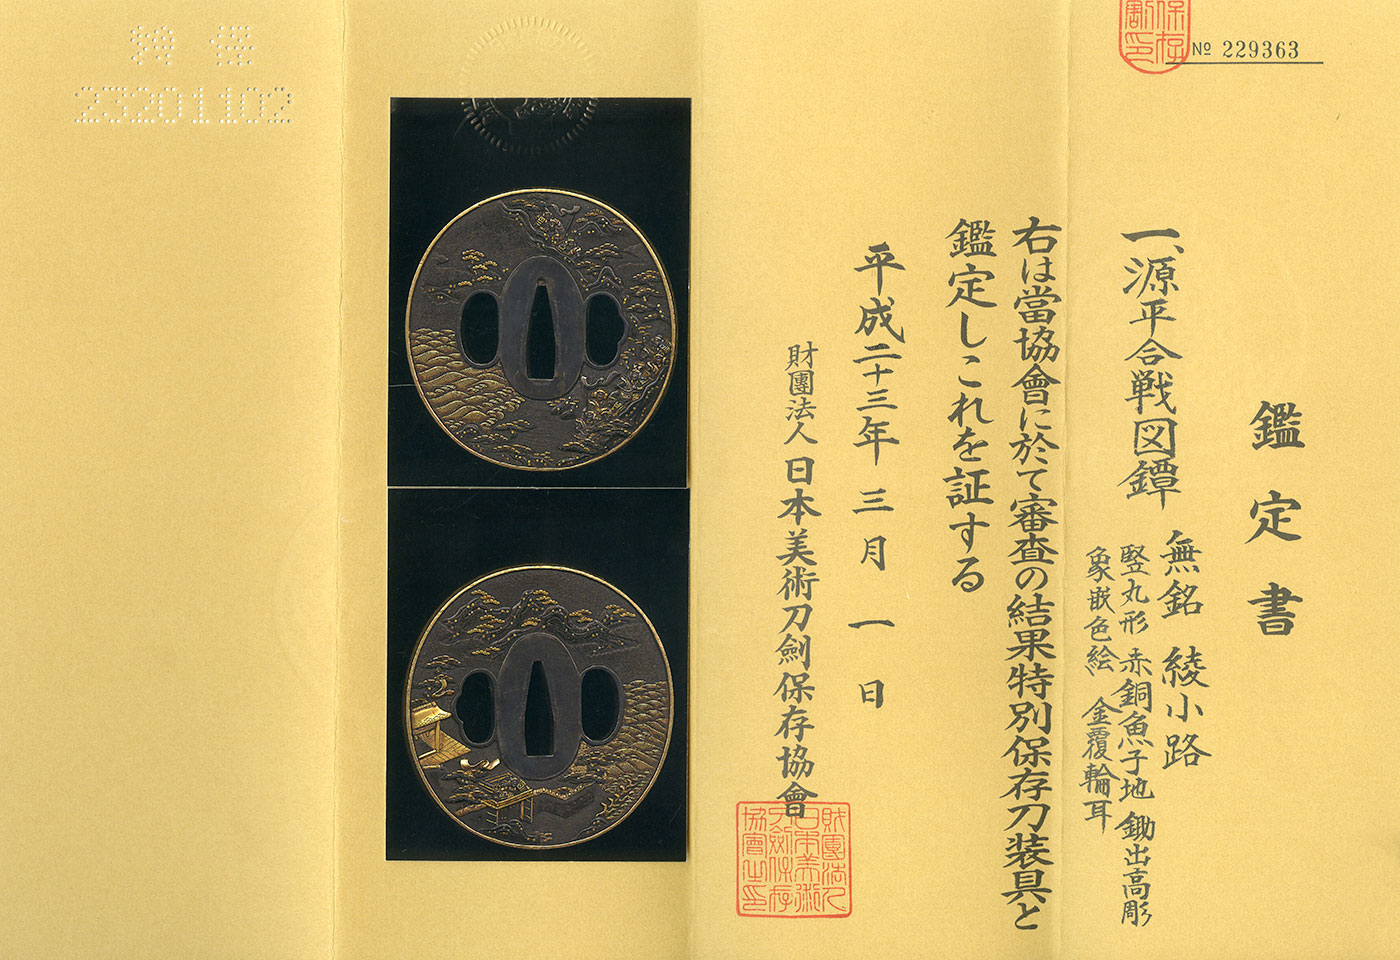 特保
23201102
保存
割印
№ 229363
鑑定書
一、源平合戦図鐔 無銘 綾小路
竪丸形 赤銅魚子地 鋤出高彫
象嵌色絵 金覆輪耳
右は當協會に於て審査の結果特別保存刀装具と
鑑定しこれを証する
平成二十三年 三月 一日
財團法人 日本美術刀劍保存協會
財團法人
日本美術
刀劍保存
協會之印